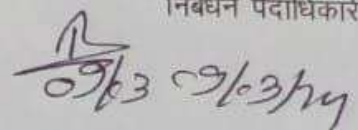 निबंधन पदाधिकार
09/03 09/03/24